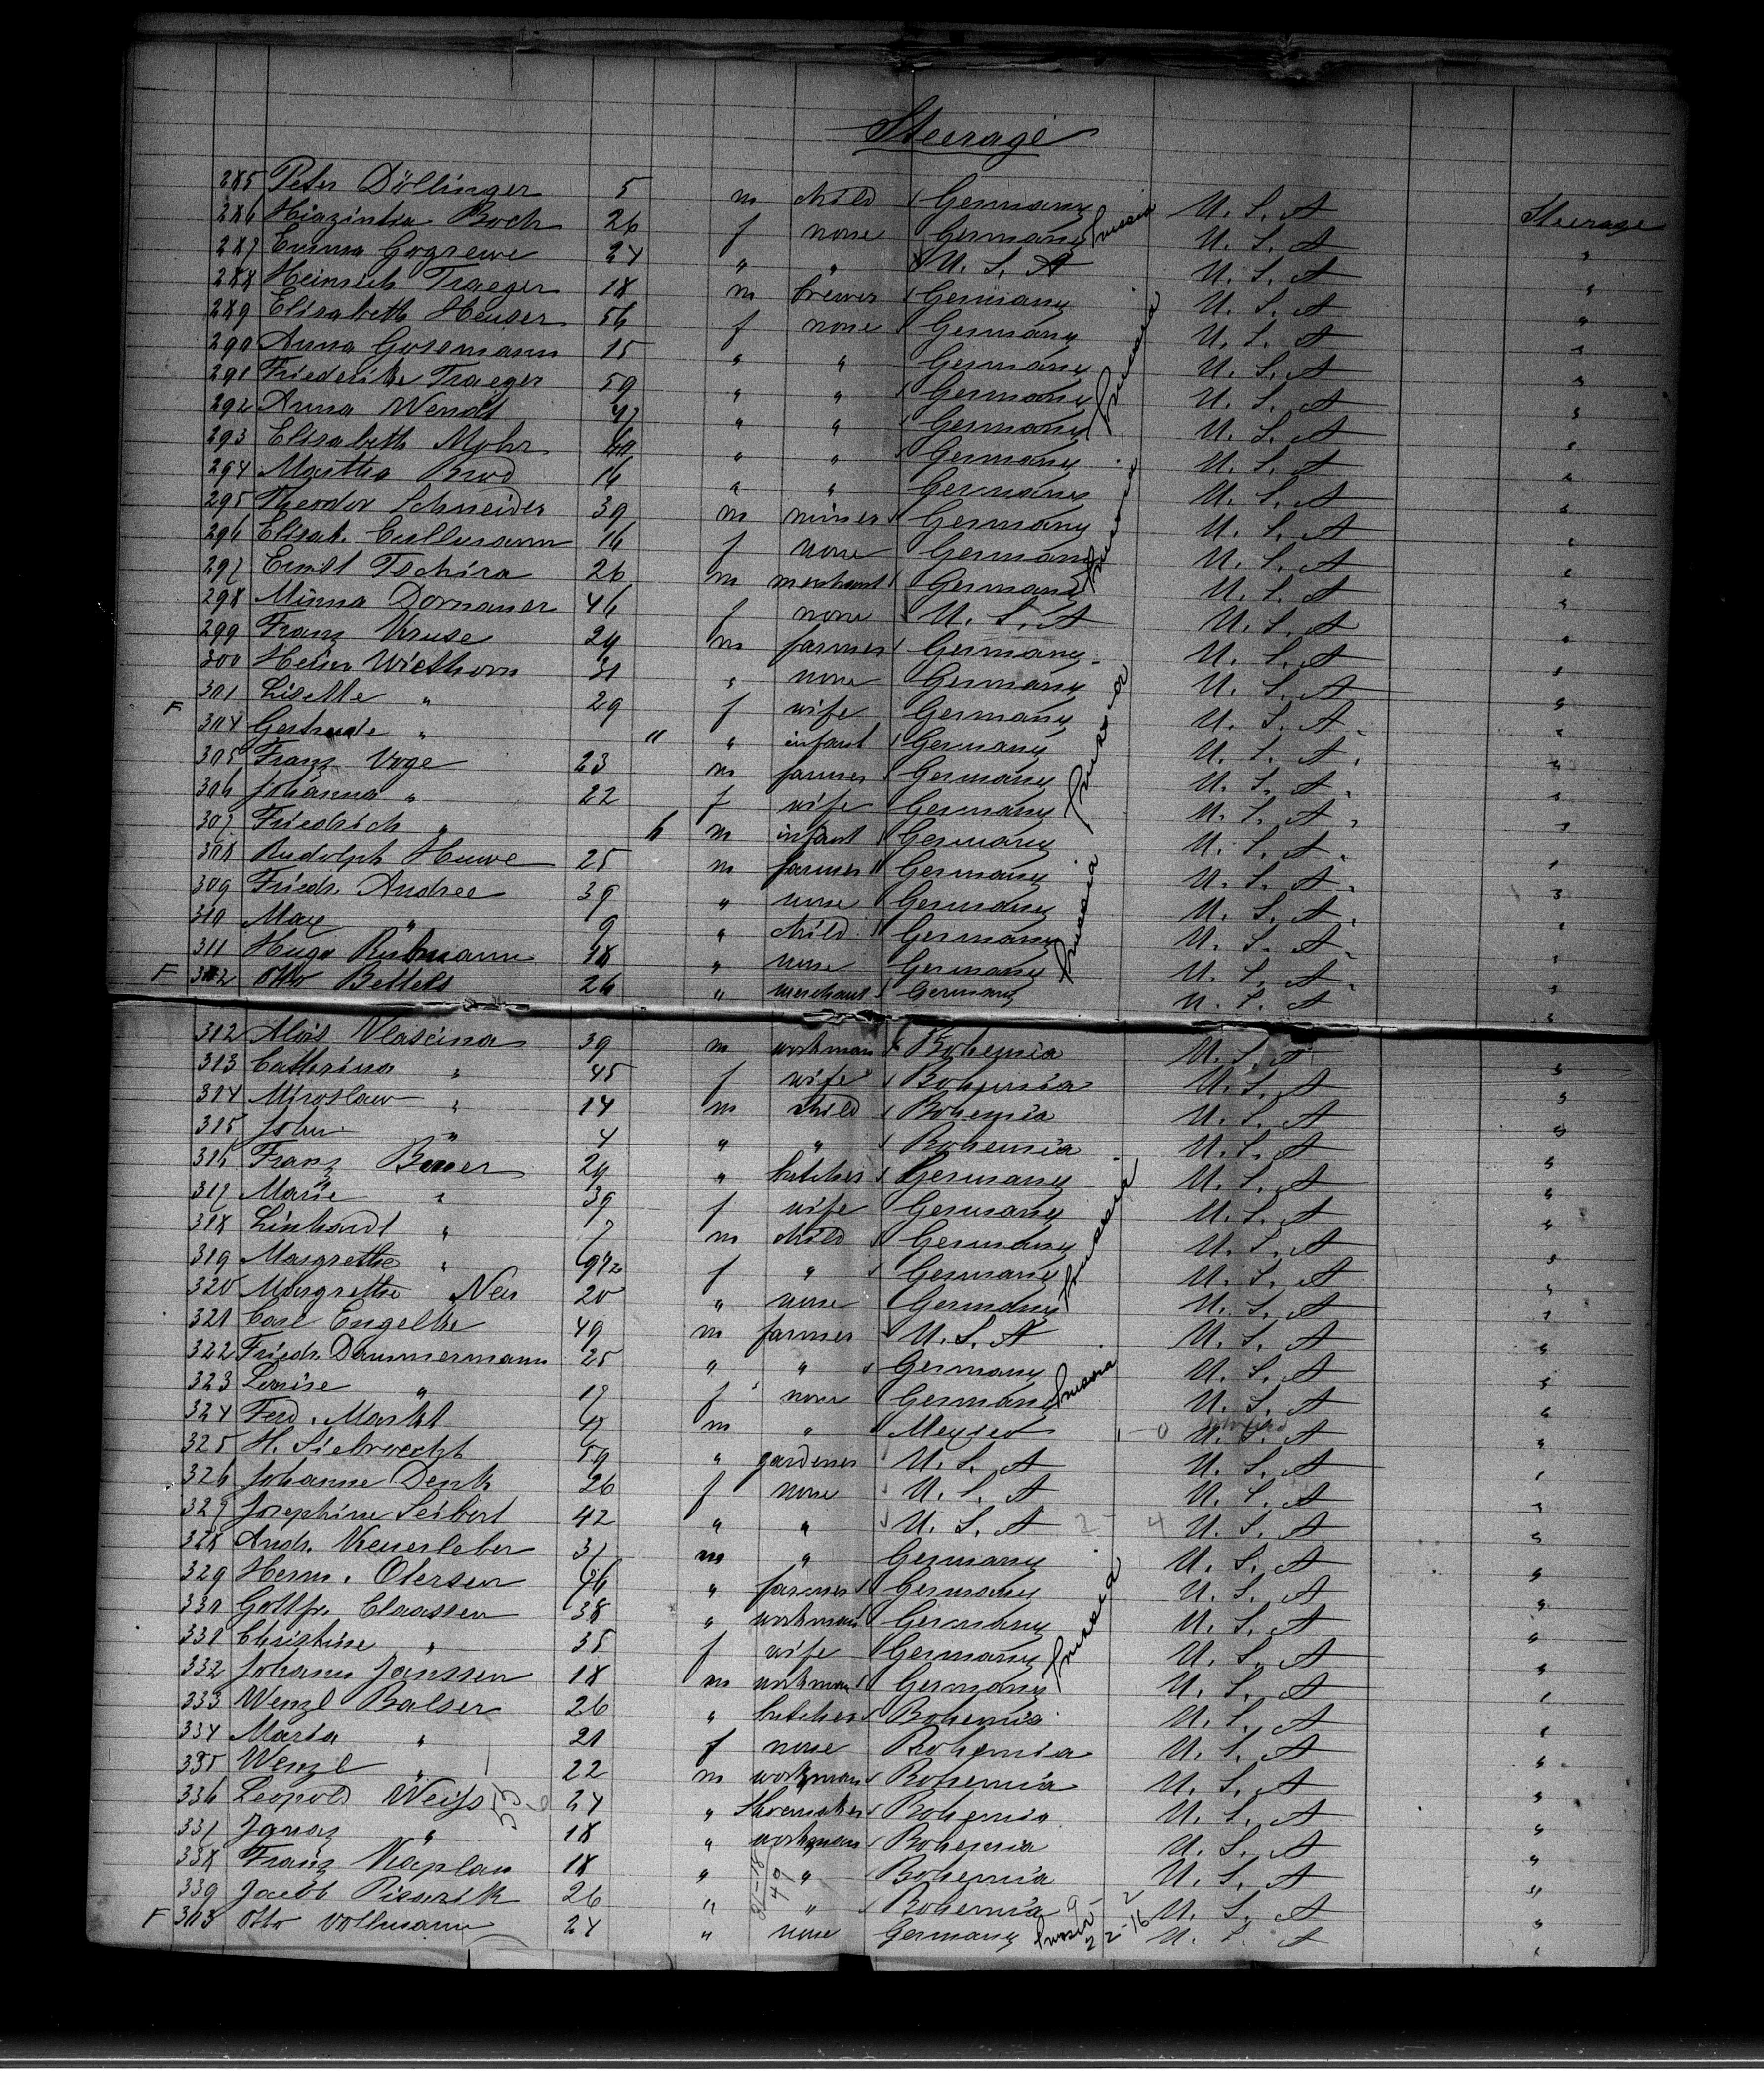 Steerage
285 Peter Döllinger 5 m child Germany U. S. A Steerage
286 Hiazintia Boch 26 f none Germany Prussia U. S. A "
287 Emma Gogrewe 24 " " U. S. A U. S. A "
288 Heinrich Traeger 18 m brewer Germany U. S. A "
289 Elisabeth Heuser 56 f none Germany U. S. A "
290 Anna Gossmann 15 " " Germany U. S. A "
291 Friederike Traeger 59 " " Germany Prussia U. S. A "
292 Anna Wendt 47 " " Germany U. S. A "
293 Elisabeth Mohr " " Germany U. S. A "
294 Martha Brod 16 " " Germany U. S. A "
295 Theodor Schneider 39 m miner Germany U. S. A "
296 Elisab. Cullmann 16 f none Germany Prussia U. S. A "
297 Ernst Tschira 26 m merchant Germany U. S. A "
298 Minna Dornauer 46 f none U. S. A U. S. A "
299 Franz Kruse 29 m farmer Germany U. S. A "
300 Heinr Wiethorn 31 " none Germany U. S. A "
301 Lisette " 29 f wife Germany U. S. A "
F 304 Gertrude " 11 " infant Germany U. S. A "
305 Franz Voge 23 m farmer Germany Prussia U. S. A "
306 Johanna " 22 f wife Germany U. S. A "
307 Friedrich " 6 m infant Germany U. S. A "
308 Rudolph Huwe 25 m farmer Germany U. S. A "
309 Friedr. Andree 39 " none Germany U. S. A "
310 Max " 9 " child Germany Prussia U. S. A "
311 Hugo Ruhmann 18 " none Germany U. S. A "
F 302 Otto Bettels 26 " merchant Germany U. S. A "
312 Alois Vlascina 39 m workman Bohemia U. S. A "
313 Catherina " 45 f wife Bohemia U. S. A "
314 Miroslaw " 14 m child Bohemia U. S. A "
315 John " 4 " " Bohemia U. S. A "
316 Franz 29 " butcher Germany U. S. A "
317 Marie " 39 f wife Germany U. S. A "
318 Linhardt " 7 m child Germany Prussia U. S. A "
319 Margrethe " f " Germany U. S. A "
320 Margrethe Neu 20 " none Germany U. S. A "
321 Carl Engelke 49 m farmer U. S. A U. S. A "
322 Friedr. Dammermann 25 " " Germany U. S. A "
323 Louise " 17 f none Germany Prussia U. S. A "
324 Ferd. Markt 47 m " Mexico 1-0 U. S. A "
325 H. Siebrecht 59 " gardener U. S. A U. S. A "
326 Johanne Denk 26 f none U. S. A U. S. A "
327 Josephine Seibert 42 " " U. S. A 2-4 U. S. A "
328 Andr. Keuerleber 31 m " Germany U. S. A "
329 Herm. Olersen 46 " farmer Germany U. S. A "
330 Gottfr. Claassen 38 " workman Germany U. S. A "
331 Christine " 35 f wife Germany Prussia U. S. A "
332 Johann Janssen 18 m workman Germany U. S. A "
333 Wenzl Balser 26 " butcher Bohemia U. S. A "
334 Maria " 21 f none Bohemia U. S. A "
335 Wenzl " 22 m workman Bohemia U. S. A "
336 Leopold Weiss 24 " Shoemaker Bohemia U. S. A "
337 Janaz " 18 " workman Bohemia U. S. A "
338 Franz Kaplan 18 " " Bohemia U. S. A "
339 Jacob 26 " " Bohemia U. S. A "
F 303 Otto Vollmann 24 " none Germany Prussia 22-16 U. S. A "